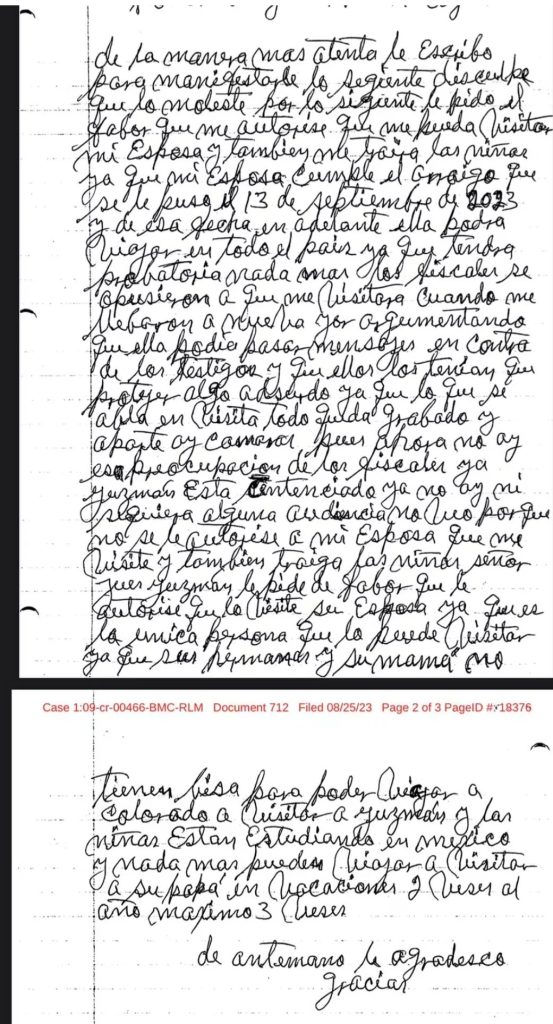 de la manera mas atenta le Escribo
para manifestarle lo segiente disculpe
que lo moleste por lo sigiente le pido el
fabor que me autorise que me pueda Visitar
mi Esposa y tambien me traiga las niñas
ya que mi Esposa Cumple el arraigo que
se le puso el 13 de septiembre de 2023
y de esa fecha en adelante ella podra
Viajar en todo el pais ya que tendra
probatoria nada mas los fiscales se
opusieron a que me Visitara cuando me
llebaron a nueva yor argumentando
que ella podia pasar mensajes en contra
de los testigos y que ellos los tenian que
protejer algo adsurdo ya que lo que se
abla en Visita todo queda grabado y
aparte ay camaras pues ahora no ay
esa preocupacion de los fiscales ya
guzmán Esta Centenciado ya no ay ni
siquiera alguna audiencia no veo por que
no se le autorise a mi Esposa que me
Visite y tambien traiga las niñas señor
jues guzmán le pide de fabor que le
autorise que lo Visite su Esposa ya que es
la unica persona que lo puede Visitar
ya que sus hermanas y su mamá no
Case 1:09-cr-00466-BMC-RLM Document 712 Filed 08/25/23 Page 2 of 3 PageID #: 18376
tienen bisa para poder Viajar a
Colorado a Visitar a guzmán y las
niñas Estan Estudiando en mexico
y nada mas pueden Viajar a Visitar
a su papá en Vacaciones 2 Veses al
año maximo 3 Veses
de antemano le agradesco
gracias